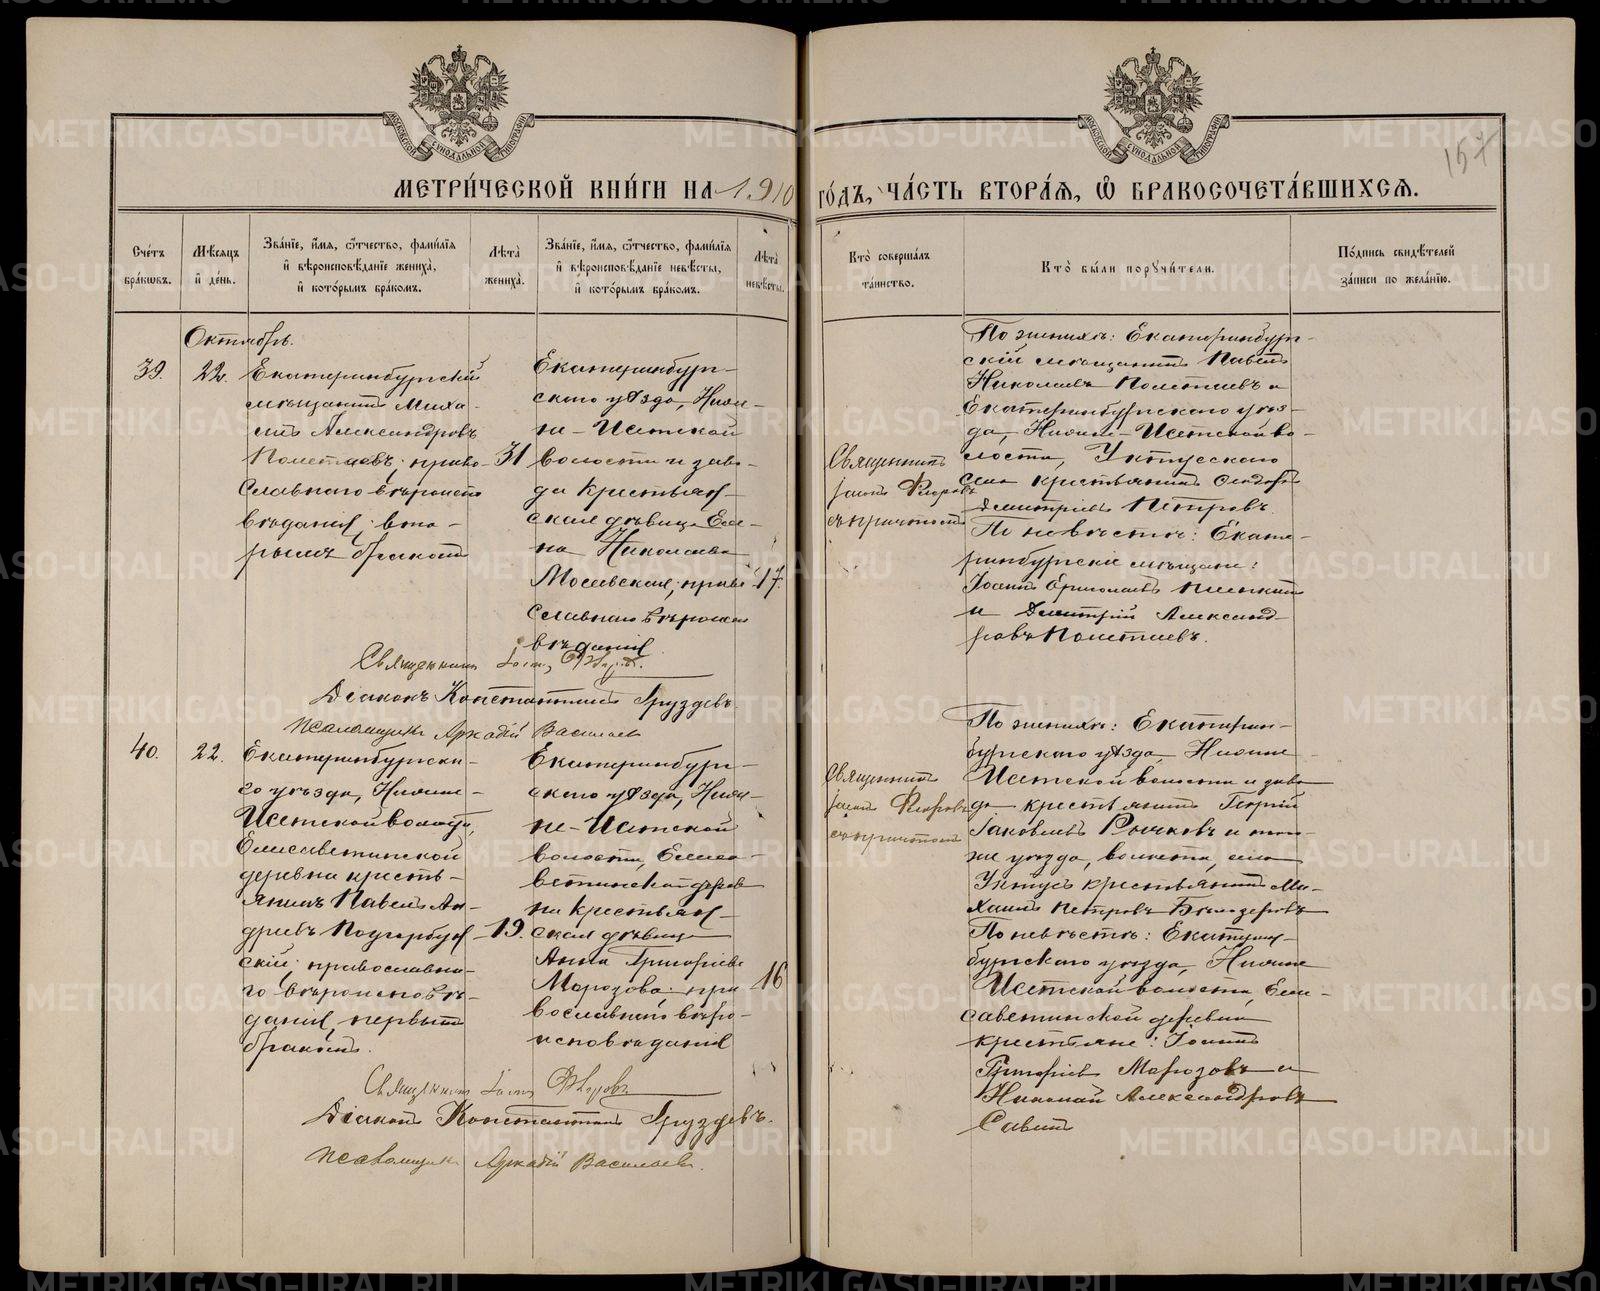 157
МЕТРИЧЕСКОЙ КНИГИ НА 1910 ГОДЪ, ЧАСТЬ ВТОРАЯ, Ѿ БРАКОСОЧЕТАВШИХСЯ.
Счетъ браковъ.
Мѣсяцъ и день.
Званіе, имя, отчество, фамилія
и вѣроисповѣданіе жениха,
и которымъ бракомъ.
Лѣта
жениха.
Званіе, имя, отчество, фамилія
и вѣроисповѣданіе невѣсты,
и которымъ бракомъ.
Лѣта
невѣсты.
Кто совершалъ
таинство.
Кто были поручители.
Подпись свидѣтелей
записи по желанію.
Октябрь.
39.
22.
Екатеринбургскій
мѣщанинъ Миха-
илъ Александровъ
Полетаевъ; право-
славнаго вѣроиспо
вѣданія; вто-
рымъ бракомъ
31
Екатеринбург-
скаго уѣзда, Ниж-
не-Исетской
волости и заво-
да крестьян-
ская дѣвица Еле-
на Николаева
православнаго вѣроиспо
вѣданія.
17.
Священникъ
Іоаннъ Флоровъ
съ причтомъ
По женихѣ: Екатеринбург-
скій мѣщанинъ Павелъ
Николаевъ Полетаевъ и
Екатеринбургскаго уѣз-
да, Нижне-Исетской во-
лости, Уктусскаго
села крестьянинъ
Димитріевъ Петровъ.
По невѣстѣ: Екате-
ринбургскіе мѣщане:
Іоаннъ
и Димитрій Александ-
ровъ Полетаевъ.
Священникъ Іоаннъ Флоровъ.
Діаконъ Константинъ Груздевъ.
Псаломщикъ Аркадій Васильевъ
40.
22.
Екатеринбургска-
го уѣзда, Нижне-
Исетской волости,
Елисаветинской
деревни кресть-
янинъ Павелъ Ан-
дреевъ
скій; православна-
го вѣроисповѣ-
данія, первымъ
бракомъ.
19.
Екатеринбург-
скаго уѣзда, Ниж-
не-Исетской
волости, Елиса-
ветинской дерев
ни крестьян-
ская дѣвица
Анна Григорьева
Морозова; пра
вославнаго вѣро-
исповѣданія
16
Священникъ
Іоаннъ Флоровъ
съ причтомъ
По женихѣ: Екатерин-
бургскаго уѣзда, Нижне
Исетской волости и заво
да крестьянинъ Георгій
Іаковлевъ Рычковъ и того
же уѣзда, волости, села
Уктусъ крестьянинъ Ми-
хаилъ Петровъ Бѣлозеровъ
По невѣстѣ: Екатерин-
бургскаго уѣзда, Нижне
Исетской волости, Ели-
саветинской деревни
крестьяне: Іоаннъ
Григорьевъ Морозовъ и
Николай Александровъ
Савинъ
Священникъ Іоаннъ Флоровъ
Діаконъ Константинъ Груздевъ.
Псаломщикъ Аркадій Васильевъ.
METRIKI.GASO-URAL.RU